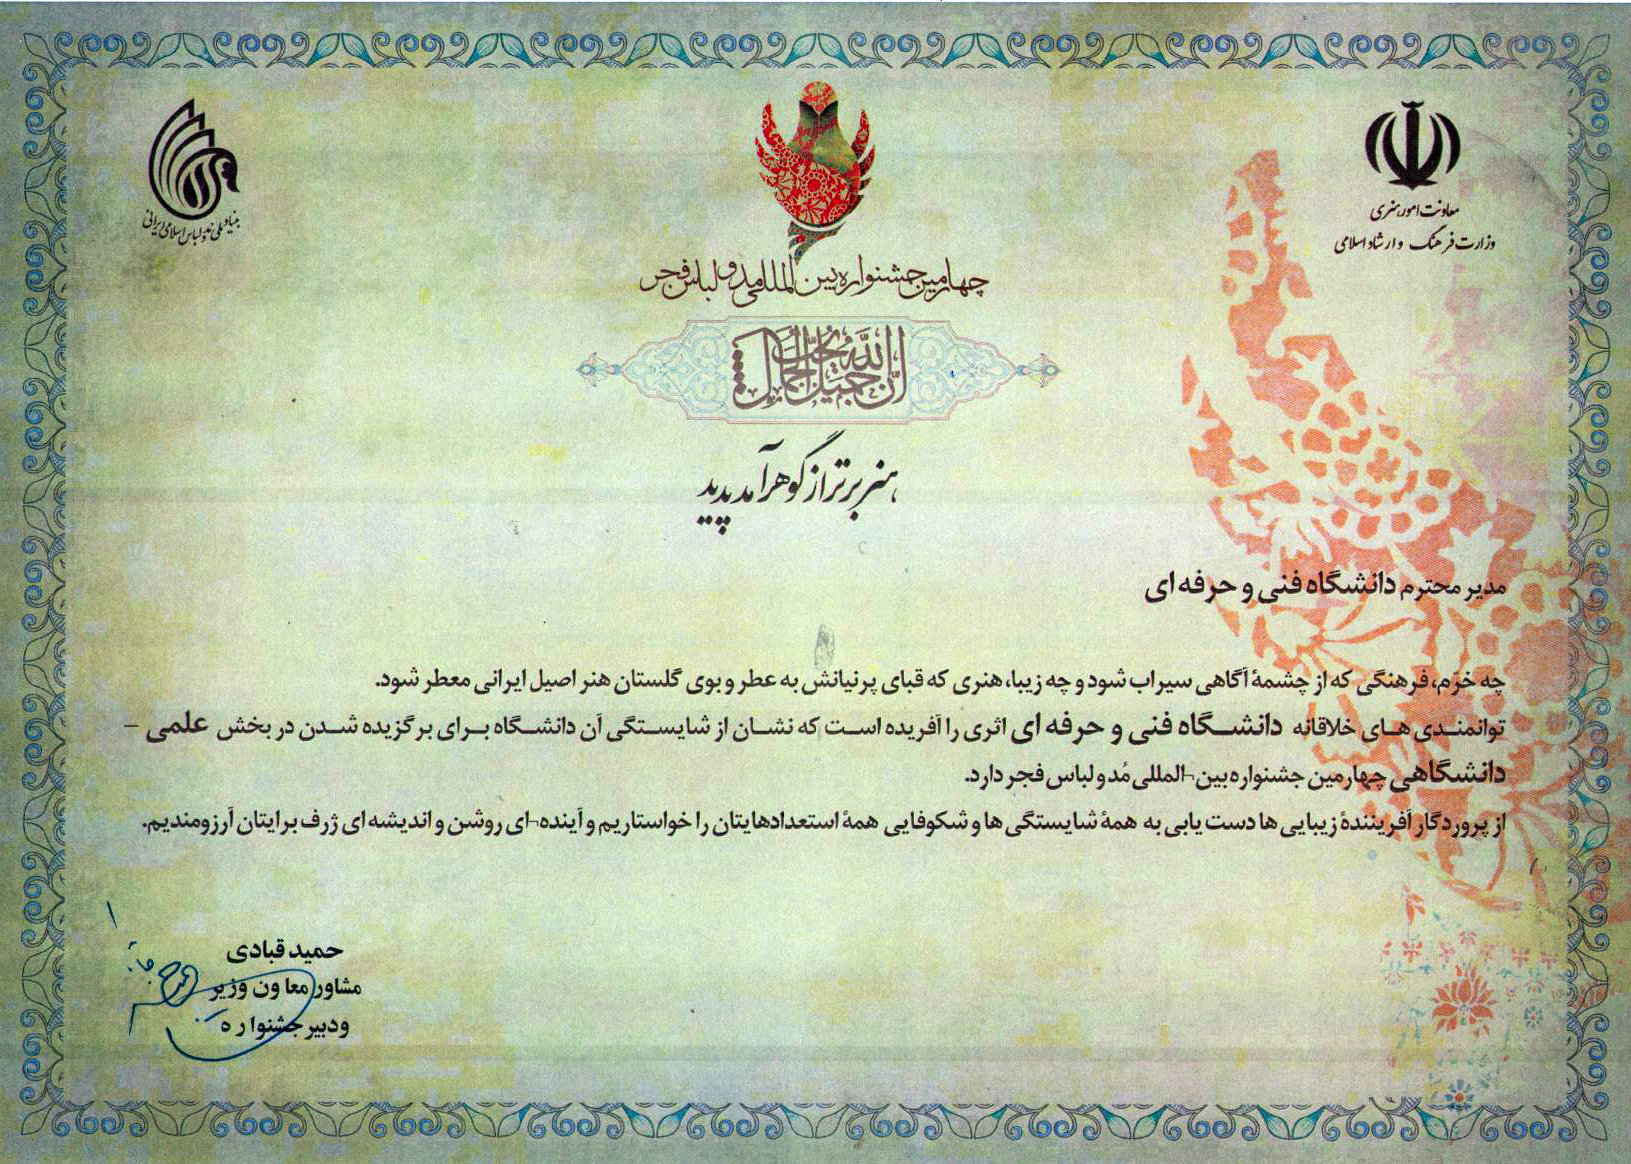 معاونت امور هنری
وزارت فرهنگ و ارشاد اسلامی
بنیاد ملی مد و لباس اسلامی ایرانی
چهارمین جشنواره بین المللی مد و لباس فجر
ان الله جمیل یحب الجمال
هنر برتر از گوهر آمد پدید
مدیر محترم دانشگاه فنی و حرفه ای
چه خرّم، فرهنگی که از چشمهٔ آگاهی سیراب شود و چه زیبا، هنری که قبای پرنیانش به عطر و بوی گلستان هنر اصیل ایرانی معطر شود.
توانمندی های خلاقانه دانشگاه فنی و حرفه ای اثری را آفریده است که نشان از شایستگی آن دانشگاه برای برگزیده شدن در بخش علمی –
دانشگاهی چهارمین جشنواره بین¬المللی مُد و لباس فجر دارد.
از پروردگار آفرینندهٔ زیبایی ها دست یابی به همهٔ شایستگی ها و شکوفایی همهٔ استعدادهایتان را خواستاریم و آینده¬ای روشن و اندیشه ای ژرف برایتان آرزومندیم.
حمید قبادی
مشاور معاون وزیر
و دبیر جشنواره